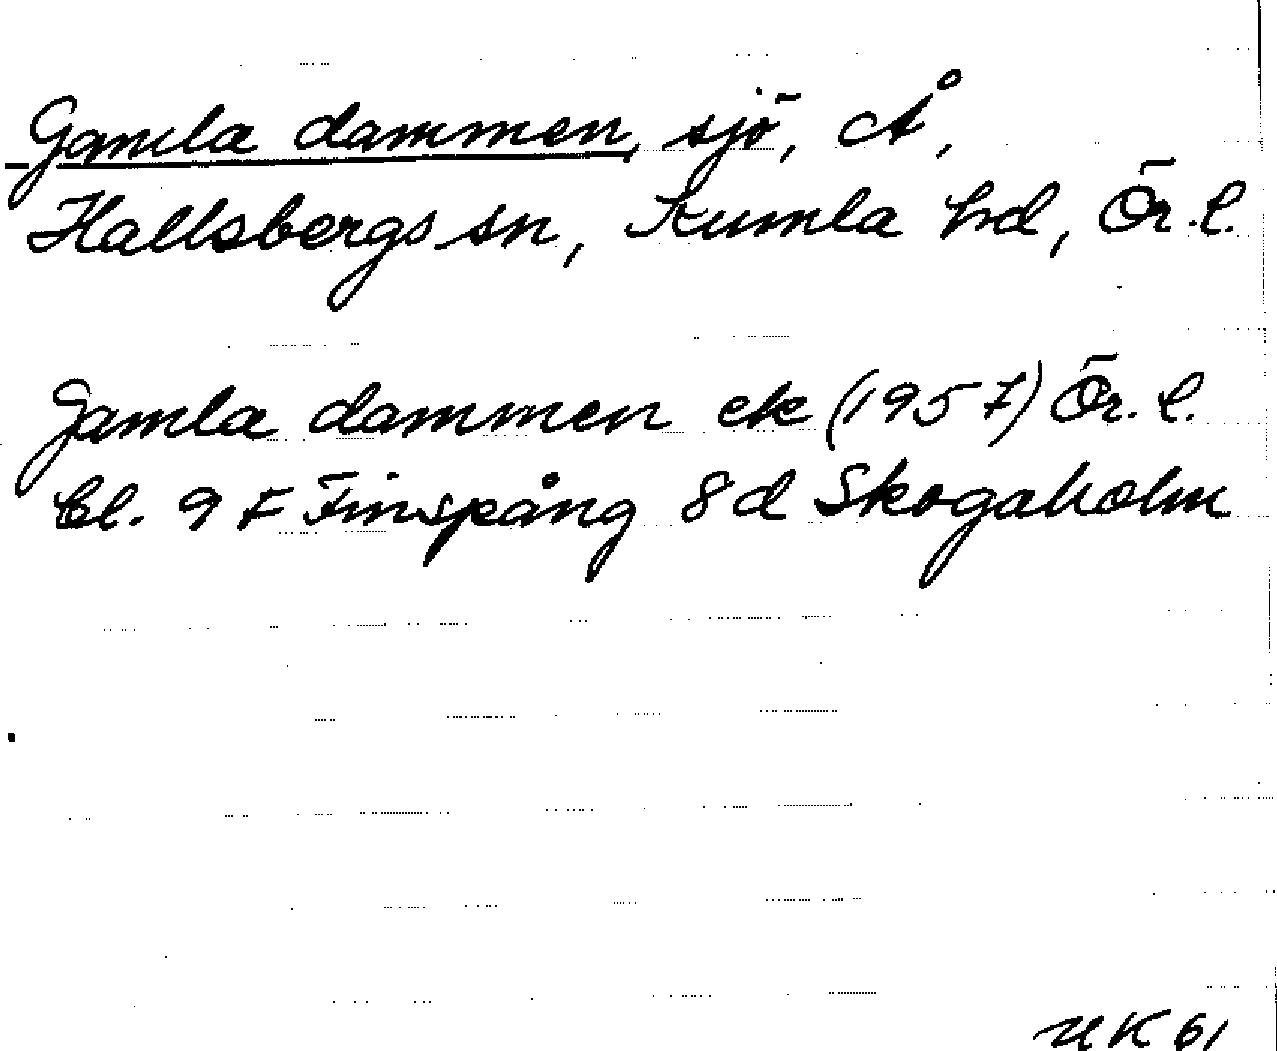 Gamla dammen, sjö, Å,
Hallsbergs sn, Kumla hd, Ör. l.
Gamla dammen ek (1957) Ör. l.
bl. 9 F Finspång 8 d Skogaholm
UK 61